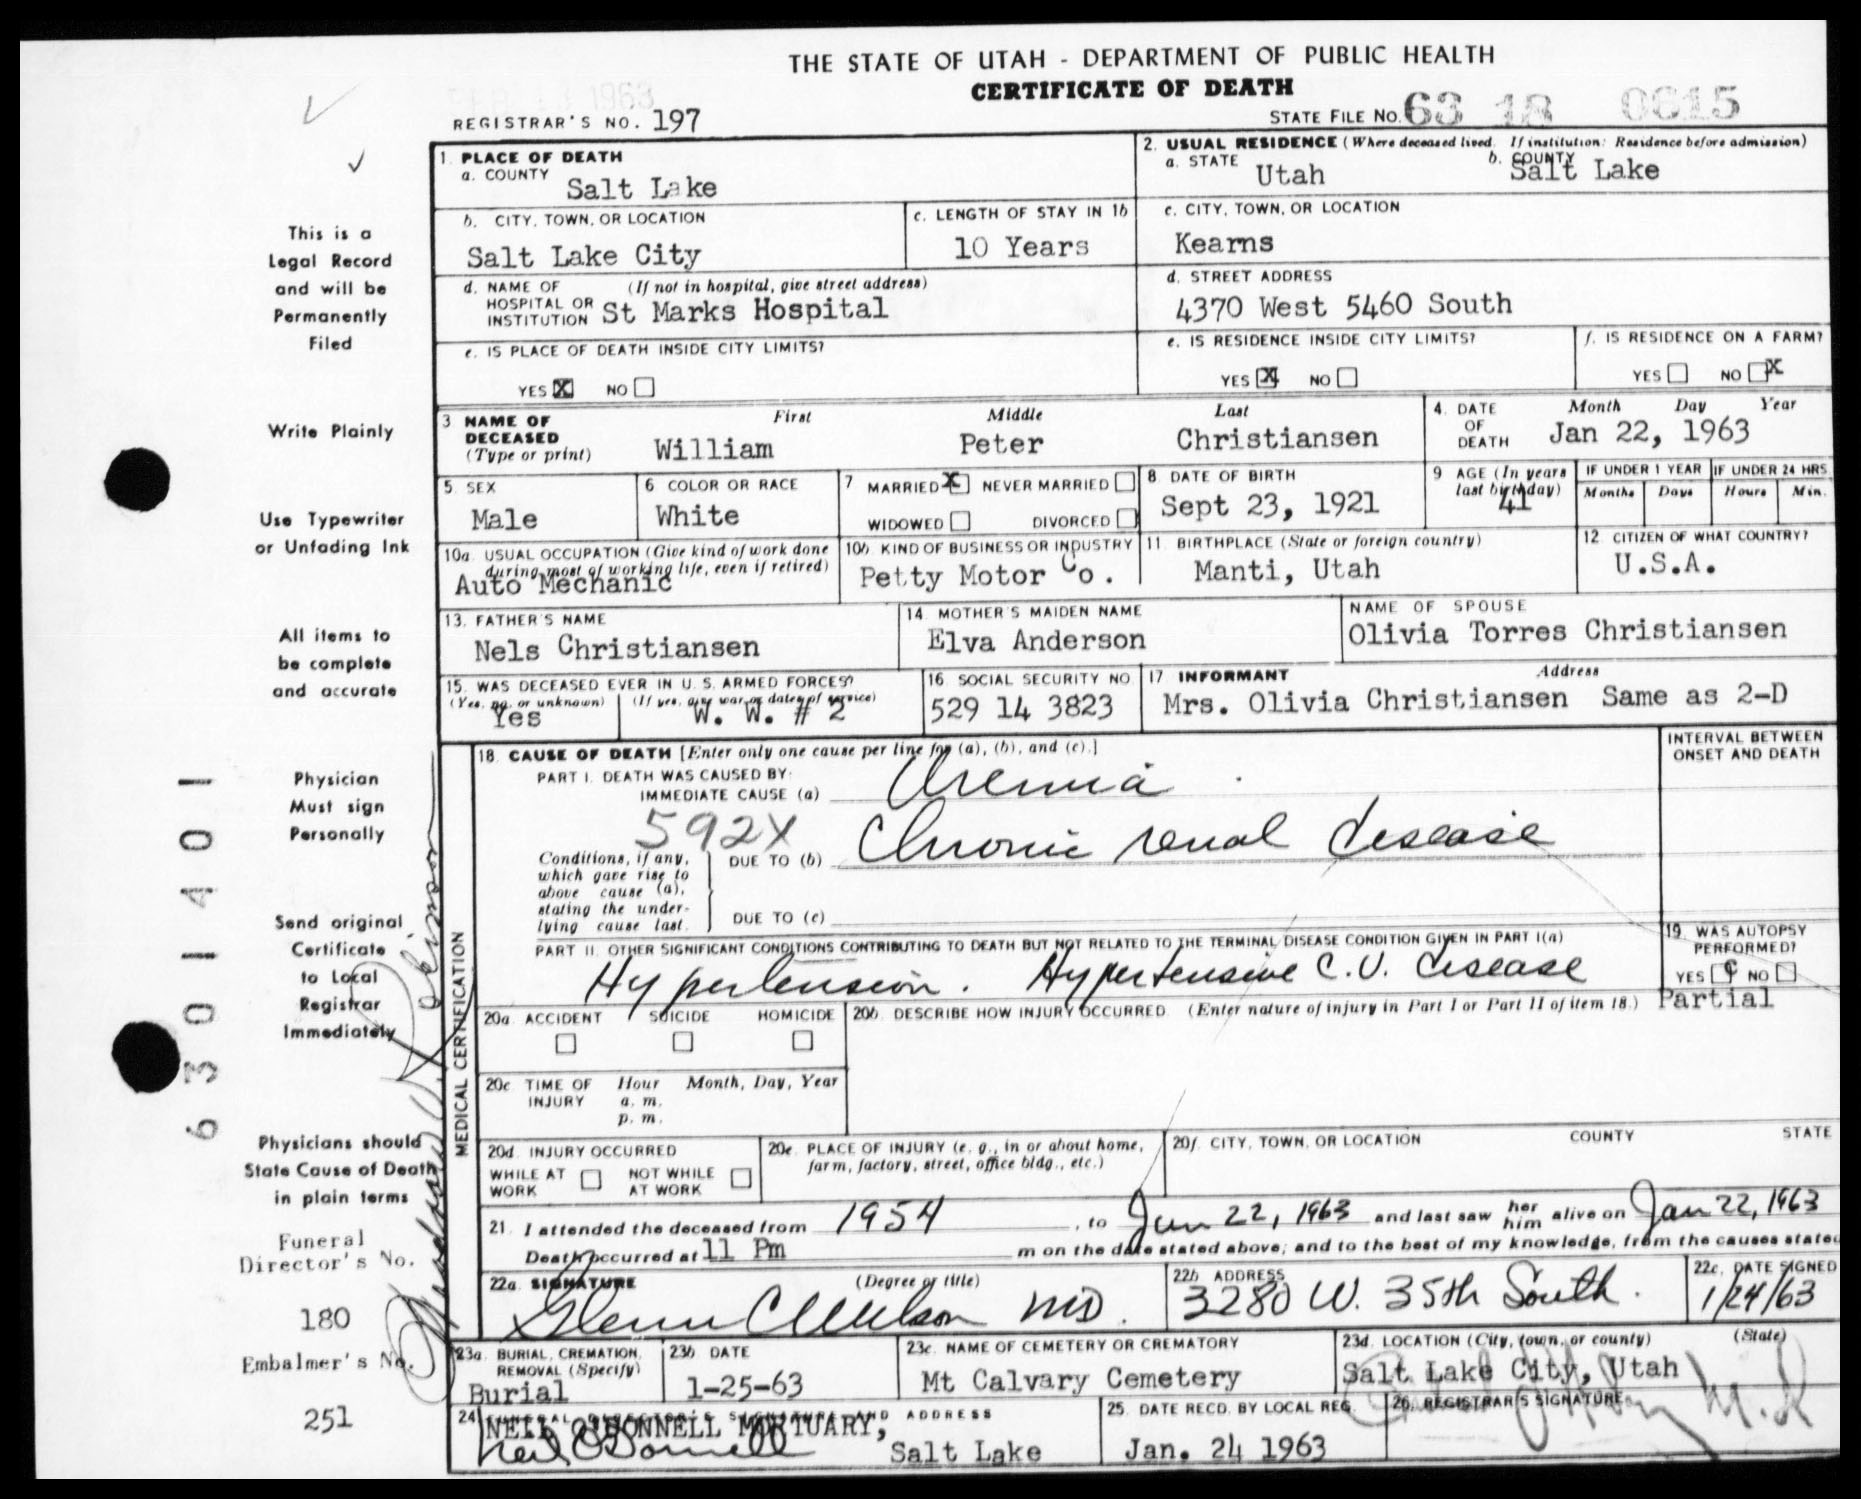 THE STATE OF UTAH - DEPARTMENT OF PUBLIC HEALTH
CERTIFICATE OF DEATH
1963
REGISTRAR'S NO. 197
STATE FILE NO. 63 18 0615
1. PLACE OF DEATH
a. COUNTY Salt Lake
2. USUAL RESIDENCE (Where deceased lived. If institution: Residence before admission)
a. STATE Utah b. COUNTY Salt Lake
b. CITY, TOWN, OR LOCATION
Salt Lake City
c. LENGTH OF STAY IN 1b
10 Years
c. CITY, TOWN, OR LOCATION
Kearns
d. NAME OF (If not in hospital, give street address)
HOSPITAL OR
INSTITUTION St Marks Hospital
d. STREET ADDRESS
4370 West 5460 South
e. IS PLACE OF DEATH INSIDE CITY LIMITS?
YES X NO
e. IS RESIDENCE INSIDE CITY LIMITS?
YES X NO
f. IS RESIDENCE ON A FARM?
YES NO X
3 NAME OF DECEASED (Type or print)
First Middle Last
William Peter Christiansen
4. DATE OF DEATH Month Day Year
Jan 22, 1963
5. SEX
Male
6 COLOR OR RACE
White
7 MARRIED X NEVER MARRIED
WIDOWED DIVORCED
8. DATE OF BIRTH
Sept 23, 1921
9 AGE (In years last birthday)
41
IF UNDER 1 YEAR
Months Days
IF UNDER 24 HRS.
Hours Min.
10a. USUAL OCCUPATION (Give kind of work done during most of working life, even if retired)
Auto Mechanic
10b. KIND OF BUSINESS OR INDUSTRY
Petty Motor Co.
11. BIRTHPLACE (State or foreign country)
Manti, Utah
12. CITIZEN OF WHAT COUNTRY?
U.S.A.
13. FATHER'S NAME
Nels Christiansen
14. MOTHER'S MAIDEN NAME
Elva Anderson
NAME OF SPOUSE
Olivia Torres Christiansen
15. WAS DECEASED EVER IN U. S. ARMED FORCES?
(Yes, no. or unknown) (If yes, give war or dates of service)
Yes W. W. # 2
16. SOCIAL SECURITY NO
529 14 3823
17 INFORMANT Address
Mrs. Olivia Christiansen Same as 2-D
MEDICAL CERTIFICATION
18. CAUSE OF DEATH [Enter only one cause per line for (a), (b), and (c).]
INTERVAL BETWEEN
ONSET AND DEATH
PART I. DEATH WAS CAUSED BY:
IMMEDIATE CAUSE (a) Uremia
592X
Conditions, if any, which gave rise to above cause (a), stating the underlying cause last.
DUE TO (b) Chronic renal disease
DUE TO (c)
PART II. OTHER SIGNIFICANT CONDITIONS CONTRIBUTING TO DEATH BUT NOT RELATED TO THE TERMINAL DISEASE CONDITION GIVEN IN PART I(a)
Hypertension. Hypertensive C.V. disease
19. WAS AUTOPSY
PERFORMED?
YES NO
Partial
20a. ACCIDENT SUICIDE HOMICIDE
20b. DESCRIBE HOW INJURY OCCURRED. (Enter nature of injury in Part I or Part II of item 18.)
20c. TIME OF INJURY Hour a. m. p. m. Month, Day, Year
20d. INJURY OCCURRED
WHILE AT WORK NOT WHILE AT WORK
20e. PLACE OF INJURY (e. g., in or about home,
farm, factory, street, office bldg., etc.)
20f. CITY, TOWN, OR LOCATION COUNTY STATE
21. I attended the deceased from 1954, to Jan 22, 1963 and last saw her him alive on Jan 22, 1963
Death occurred at 11 Pm m on the date stated above; and to the best of my knowledge, from the causes stated
22a. SIGNATURE (Degree or title)
MD.
22b ADDRESS
3280 W. 35th South.
22c. DATE SIGNED
1/24/63
23a. BURIAL, CREMATION, REMOVAL (Specify)
Burial
23b DATE
1-25-63
23c. NAME OF CEMETERY OR CREMATORY
Mt Calvary Cemetery
23d. LOCATION (City, town, or county) (State)
Salt Lake City, Utah
24 FUNERAL DIRECTOR'S SIGNATURE AND ADDRESS
NEIL O'DONNELL MORTUARY,
Neil O'Donnell Salt Lake
25. DATE RECD. BY LOCAL REG.
Jan. 24 1963
26. REGISTRAR'S SIGNATURE
This is a
Legal Record
and will be
Permanently
Filed
Write Plainly
Use Typewriter
or Unfading Ink
All items to
be complete
and accurate
Physician
Must sign
Personally
Send original
Certificate
to Local
Registrar
Immediately
Physicians should
State Cause of Death
in plain terms
Funeral
Director's No.
180
Embalmer's No.
251
6301401